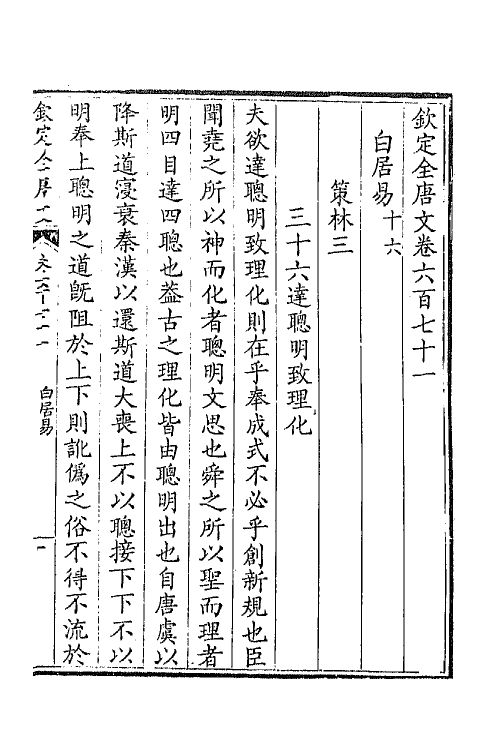 欽定全唐文卷六百七十一
白居易十六
策林三
三十六達聰明致理化
夫欲達聰明致理化則在乎奉成式不必乎創新規也臣
聞堯之所以神而化者聰明文思也舜之所以聖而理者
明四目達四聰也葢古之理化皆由聰明出也自唐虞以
降斯道寖衰秦漢以還斯道大喪上不以聰接下下不以
明奉上聰明之道旣阻於上下則訛僞之俗不得不流於
欽定全唐文
白居易
一